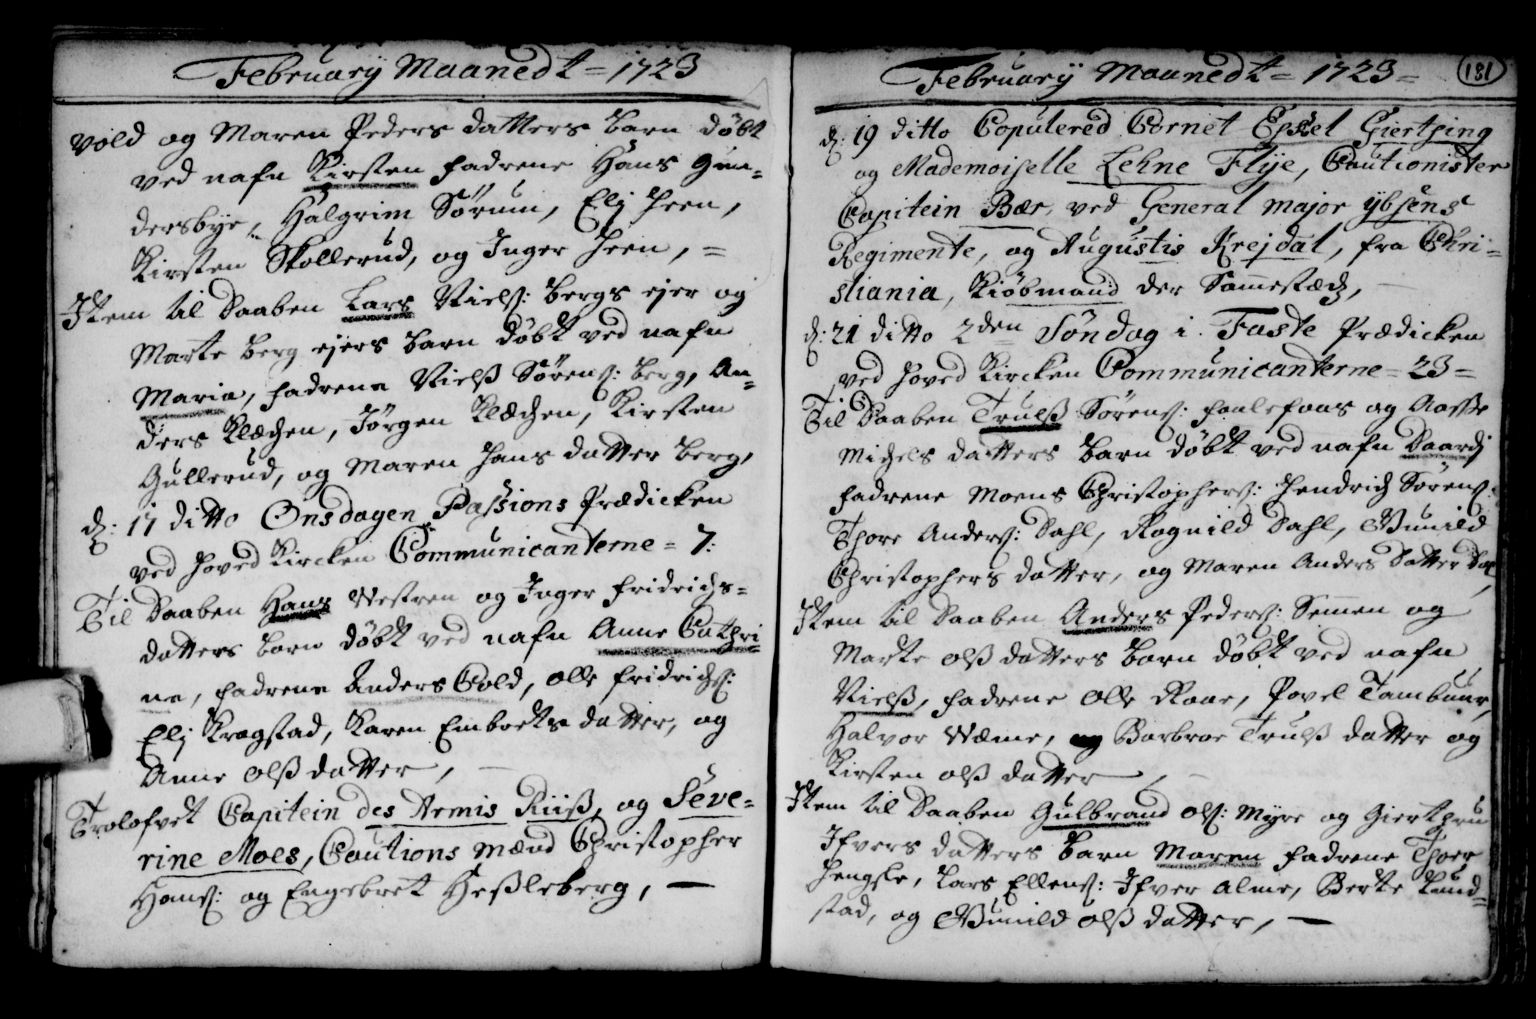 February Maanedt = 1723
vold og Maren Peders datters barn døbt
ved nafn Kirsten fadrene Hans Gun-
dersbye, Halgrim Sørum, Elj Heen,
Kirsten Skollerud, og Inger Heen, =
Item til Daaben Lars Niels: bergs ejer og
Marte berg ejers barn døbt ved nafn
Maria, fadrene Nielß Sørens: berg, An-
ders Klæchen, Jørgen Klæchen, Kirsten
Gullerud, og Maren Hans datter berg,
d: 17 ditto Onsdagen Passions Prædicken
ved Hoved Kircken Communicanterne = 7:
Til Daaben Hans Vestren og Inger fridrichs-
datters barn døbt ved nafn Anne Cathri-
ne, fadrene Anders Gold, Olle fridrichs:
Elj Kragstad, Karen Embrets datter, og
Anne Olß datter,
Trolofvet Capitein des Armis Riiß, og Seve-
rine Moes, Cautions mænd Christopher
Hans: og Engebret Heßleberg, —
February Maanedt = 1723 =
181
d: 19 ditto Copulered Cornet Eskel Giertsing
og Mademoiselle Lehne Flÿe, Cautionister
Capitein Bær, ved General major ÿbsens
Regimente, og Augustis Krejdal, fra Chri-
stiania, Kiøbmand der Sammestædz,
d: 21 ditto 2den Søndag i Faste Prædicken
ved Hoved Kircken Communicanterne = 23 =
Til Daaben Trulß Sørens: faalefaas og Aasse
Michels datters barn døbt ved nafn Baardj
fadrene Moens Christophers: Hendrich Sørens:
Thore Anders: Dahl, Ragnild Dahl, Gunild
Christophers datter, og Maren Anders datter
Item til Daaben Anders Peders: Semen og
Marte Olß datters barn døbt ved nafn
Nielß, fadrene Olle Roae, Povel Tambuur,
Halvor Væme, og Barbroe Trulß datter og
Kirsten Olß datter,
Item til Daaben Gulbrand Ols: Myre og Gierthru
Ifvers datters barn Maren fadrene Thoer
Hengsle, Lars Ellens: Ifver Alme, Berte Rund-
stad, og Gunild Olß datter, —